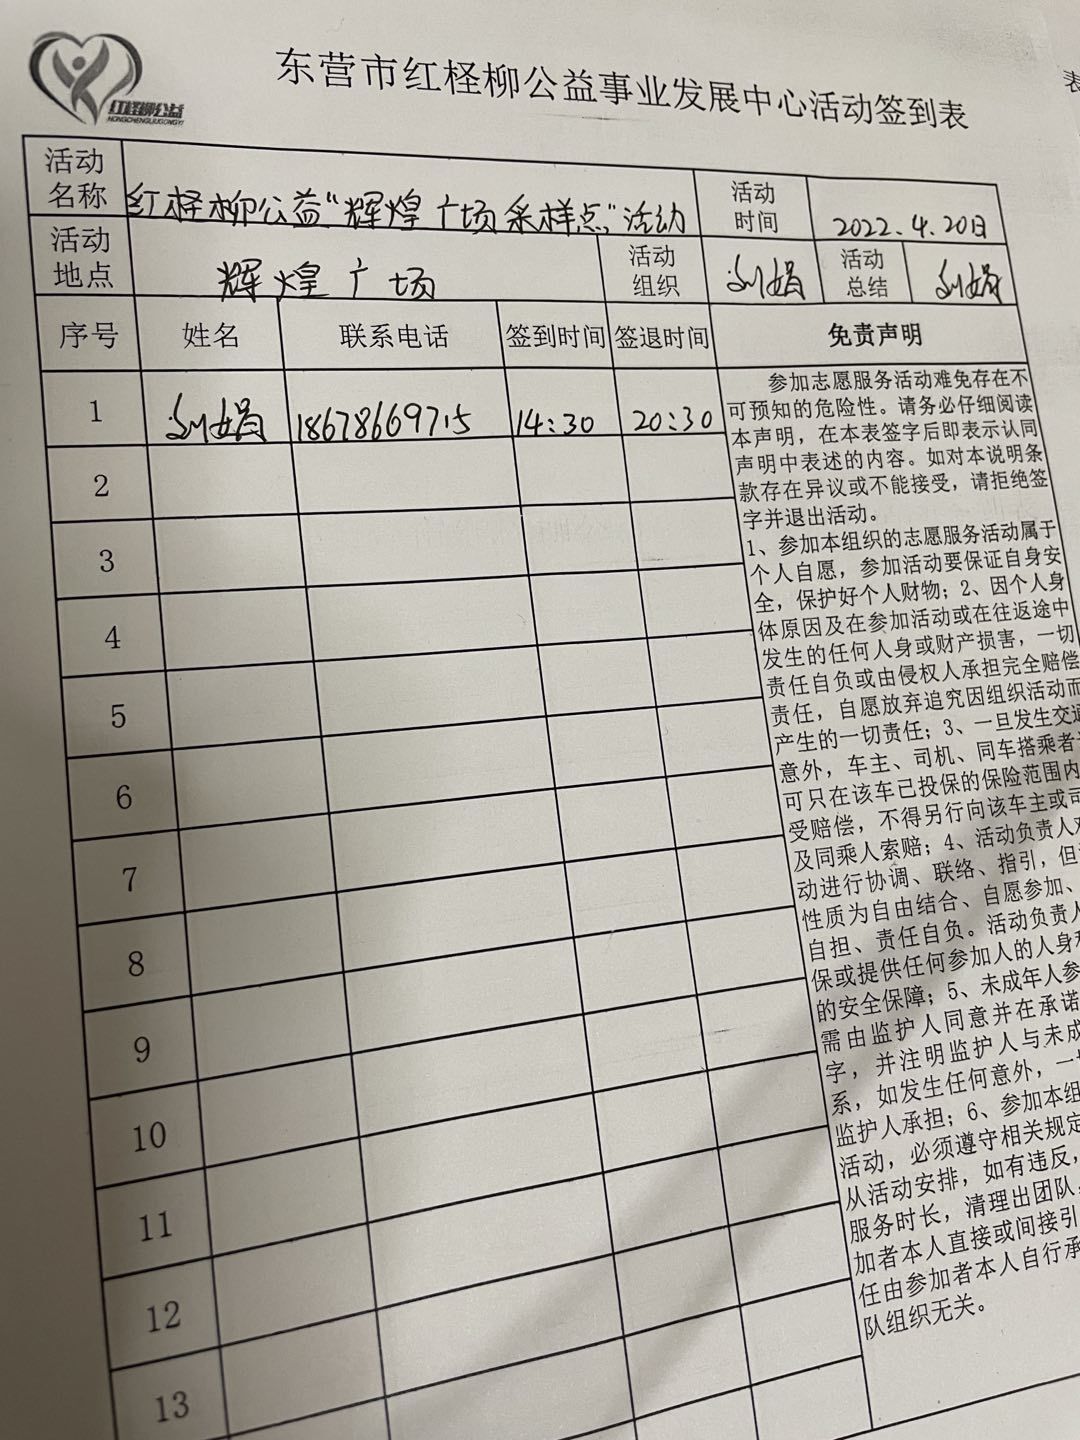 红柽柳公益
HONGCHENGLIUGONGYI
东营市红柽柳公益事业发展中心活动签到表
表
活动名称 红柽柳公益“辉煌广场采样点”活动 活动时间 2022.4.20日
活动地点 辉煌广场 活动组织 刘娟 活动总结 刘娟
序号 姓名 联系电话 签到时间 签退时间 免责声明
1 刘娟 18678669715 14:30 20:30
2
3
4
5
6
7
8
9
10
11
12
13
参加志愿服务活动难免存在不
可预知的危险性。请务必仔细阅读
本声明，在本表签字后即表示认同
声明中表述的内容。如对本说明条
款存在异议或不能接受，请拒绝签
字并退出活动。
1、参加本组织的志愿服务活动属于
个人自愿，参加活动要保证自身安
全，保护好个人财物；2、因个人身
体原因及在参加活动或在往返途中
发生的任何人身或财产损害，一切
责任自负或由侵权人承担完全赔偿
责任，自愿放弃追究因组织活动而
产生的一切责任；3、一旦发生交通
意外，车主、司机、同车搭乘者
可只在该车已投保的保险范围内
受赔偿，不得另行向该车主或司
及同乘人索赔；4、活动负责人对
动进行协调、联络、指引，但
性质为自由结合、自愿参加、
自担、责任自负。活动负责人
保或提供任何参加人的人身
的安全保障；5、未成年人参
需由监护人同意并在承诺
字，并注明监护人与未成
系，如发生任何意外，一
监护人承担；6、参加本组
活动，必须遵守相关规定
从活动安排，如有违反，
服务时长，清理出团队
加者本人直接或间接引
任由参加者本人自行承
队组织无关。